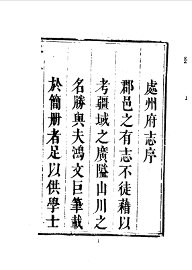 處州府志序
郡邑之有志不徒藉以
考疆域之廣隘山川之
名勝與夫鴻文巨筆載
於簡册者足以供學士